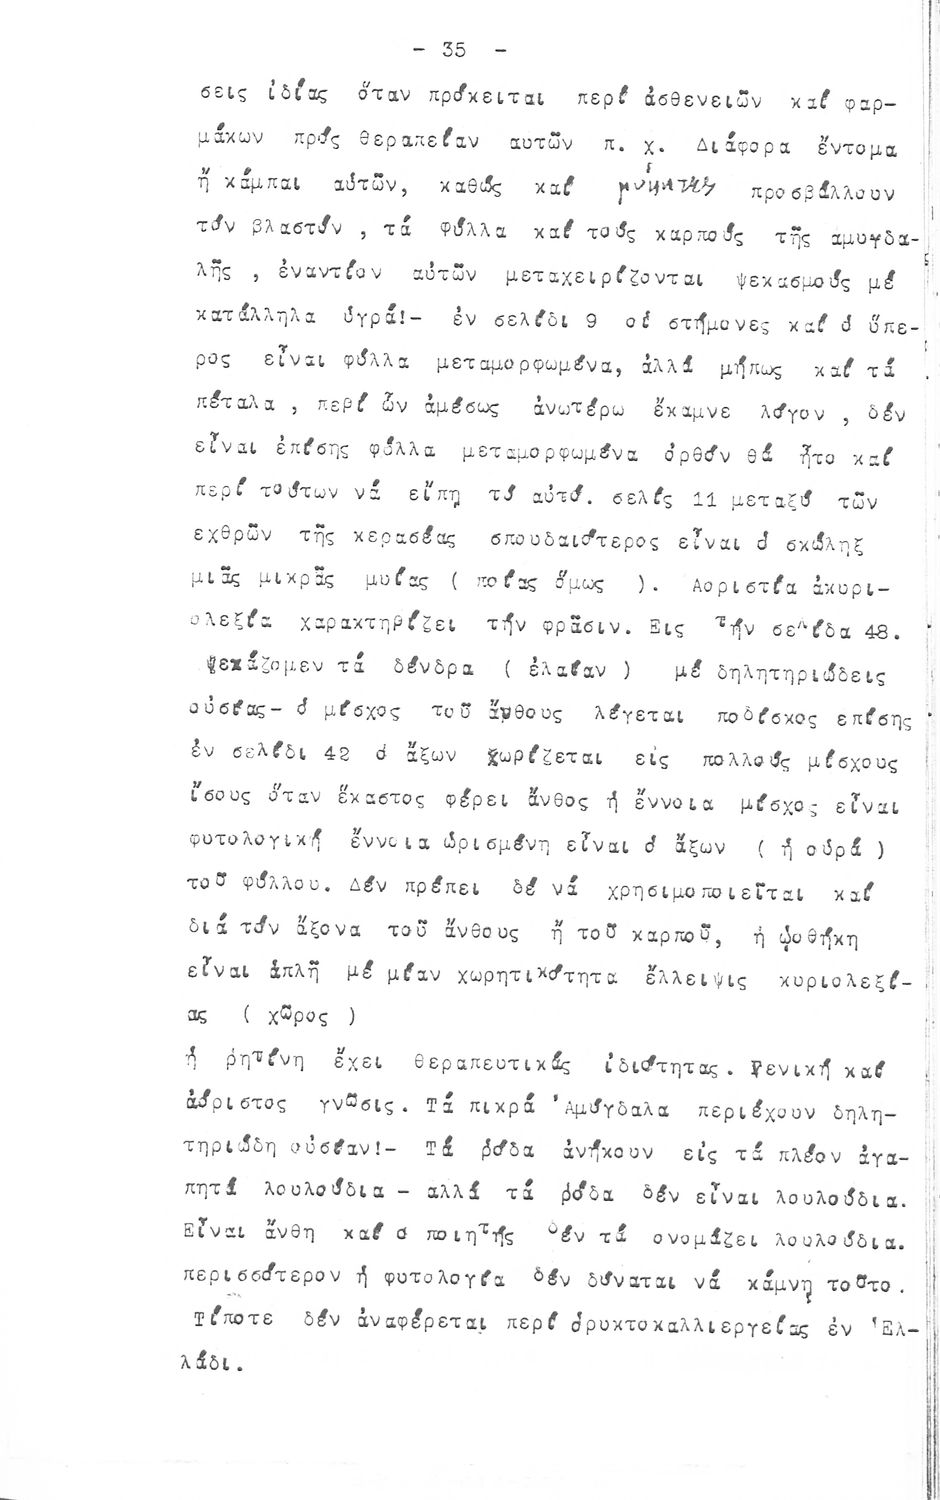 - 35 -
σεις ἰδίας ὅταν πρόκειται περί ἀσθενειῶν καί φαρ-
μάκων πρός θεραπείαν αυτῶν π. χ. Διάφορα ἔντομα
ἤ κάμπαι αὐτῶν, καθώς καί μύκητες προσβάλλουν
τόν βλαστόν , τά φύλλα καί τούς καρπούς τῆς αμυγδα-
λῆς , ἐναντίον αὐτῶν μεταχειρίζονται ψεκασμούς μέ
κατάλληλα ὑγρά!- ἐν σελίδι 9 οἱ στήμονες καί ὁ ὕπε-
ρος εἶναι φύλλα μεταμορφωμένα, ἀλλά μήπως καί τά
πέταλα , περί ὧν ἀμέσως ἀνωτέρω ἔκαμνε λόγον , δέν
εἶναι ἐπίσης φύλλα μεταμορφωμένα ὀρθόν θά ἦτο καί
περί τούτων νά εἴπῃ τό αὐτό. σελίς 11 μεταξύ τῶν
εχθρῶν τῆς κερασέας σπουδαιότερος εἶναι ὁ σκώληξ
μιᾶς μικρᾶς μυίας ( ποίας ὅμως ). Αοριστία ἀκυρι-
ολεξία χαρακτηρίζει τήν φρᾶσιν. Εις τήν σελίδα 48.
ψεκάζομεν τά δένδρα ( ἐλαίαν ) μέ δηλητηριώδεις
οὐσίας- ὁ μίσχος τοῦ ἄνθους λέγεται ποδίσκος επίσης
ἐν σελίδι 42 ὁ ἄξων χωρίζεται εἰς πολλούς μίσχους
ἴσους ὅταν ἕκαστος φέρει ἄνθος ἡ ἔννοια μίσχος εἶναι
φυτολογική ἔννοια ὡρισμένη εἶναι ὁ ἄξων ( ἡ οὐρά )
τοῦ φύλλου. Δέν πρέπει δέ νά χρησιμοποιεῖται καί
διά τόν ἄξονα τοῦ ἄνθους ἤ τοῦ καρποῦ, ἡ ᾠοθήκη
εἶναι ἁπλῆ μέ μίαν χωρητικότητα ἔλλειψις κυριολεξί-
ας ( χῶρος )
ἡ ῥητίνη ἔχει θεραπευτικάς ἰδιότητας. Γενική καί
ἀόριστος γνῶσις. Τά πικρά 'Αμύγδαλα περιέχουν δηλη-
τηριώδη οὐσίαν!- Τά ρόδα ἀνήκουν εἰς τά πλέον ἀγα-
πητά λουλούδια - αλλά τά ρόδα δέν εἶναι λουλούδια.
Εἶναι ἄνθη καί ὁ ποιητής δέν τά ονομάζει λουλούδια.
περισσότερον ἡ φυτολογία δέν δύναται νά κάμνῃ τοῦτο.
Τίποτε δέν ἀναφέρεται περί ὀρυκτοκαλλιεργείας ἐν 'Ελ-
λάδι.